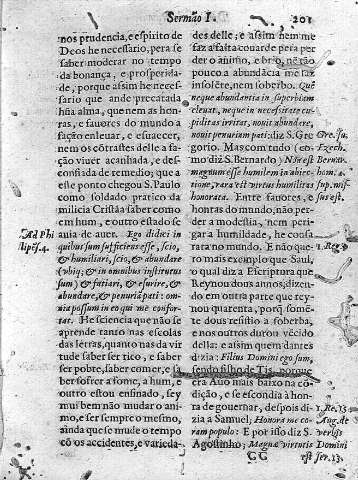 Sermão I.
201
nos prudencia, e espirito de
Deos he necessario, pera se
saber moderar no tempo
da bonança, e prosperida-
de, porque assim he neces-
sario que ande precatada
hũa alma, quem nem as hon-
ras, e fauores do mundo a
fação enleuar, e esuaecer,
nem os cõtrastes delle a fa-
ção viuer acanhada, e des-
confiada de remedio; que a
este ponto chegou S. Paulo
como soldado pratico da
milicia Cristãa saber como
em hum, e outro estado se
auia de auer. Ego didici in
quibus sum sufficiens esse, scio,
& humiliari, scio, & abundare
(vbiq; & in omnibus institutus
sum) & satiari, & esurire, &
abundare, & penuriã pati: om-
nia possum in eo qui me confor-
tat. He sciencia que não se
aprende tanto nas escolas
das letras, quanto nas da vir
tude saber ser rico, e saber
ser pobre, saber comer, e sa
ber sofrer a fome, a hum, e
outro estou ensinado, sey
mui bem não mudar o ani-
mo, e ser sempre o mesmo,
ainda que se mude o tempo
cõ os accidentes, e varieda-
Ad Phi
lipẽs. 4.
des delle; e assim nem me
faz a falta couarde pera per
der o animo, e brio, nẽ tão
pouco a abundãcia me faz
insolẽte, nem soberbo. Quē
neque abundantia in superbiam
eleuat, neque in necessitate cu-
piditas irritat, nouit abundare,
nouit penuriam pati; diz S. Gre
gorio. Mas com tudo (co-
mo diz S. Bernardo) Nõ est
magnum esse humilem in abiec-
tione, rara est virtus humilitas
honorata. Entre fauores, e
honras do mundo, não per-
der a modestia, nem peri-
gar a humildade, he cousa
rara no mundo. E não que-
ro mais exemplo que Saul,
o qual diz a Escriptura que
Reynou dous annos, dizen-
do em outra parte que rey-
nou quarenta, porq̃ somẽ-
te dous resistio a soberba,
e nos outros durou vẽcido
della: e assim a quem dantes
dizia: Filius Domini ego sum,
sendo filho de Tis, porque
era Auo mais baixo na cõ-
dição, e se escondia á hon-
ra de gouernar, despois di-
zia a Samuel; Honora me co-
ram populo: E por isso diz S.
Agostinho; Magnæ virtutis
CC
Gre. su.
Ezech.
Bernar.
hom. 4.
sup. mis-
sus est.
1. Reg.
1. Re. 15
Aug. de
verbis
Domini
ser. 13.